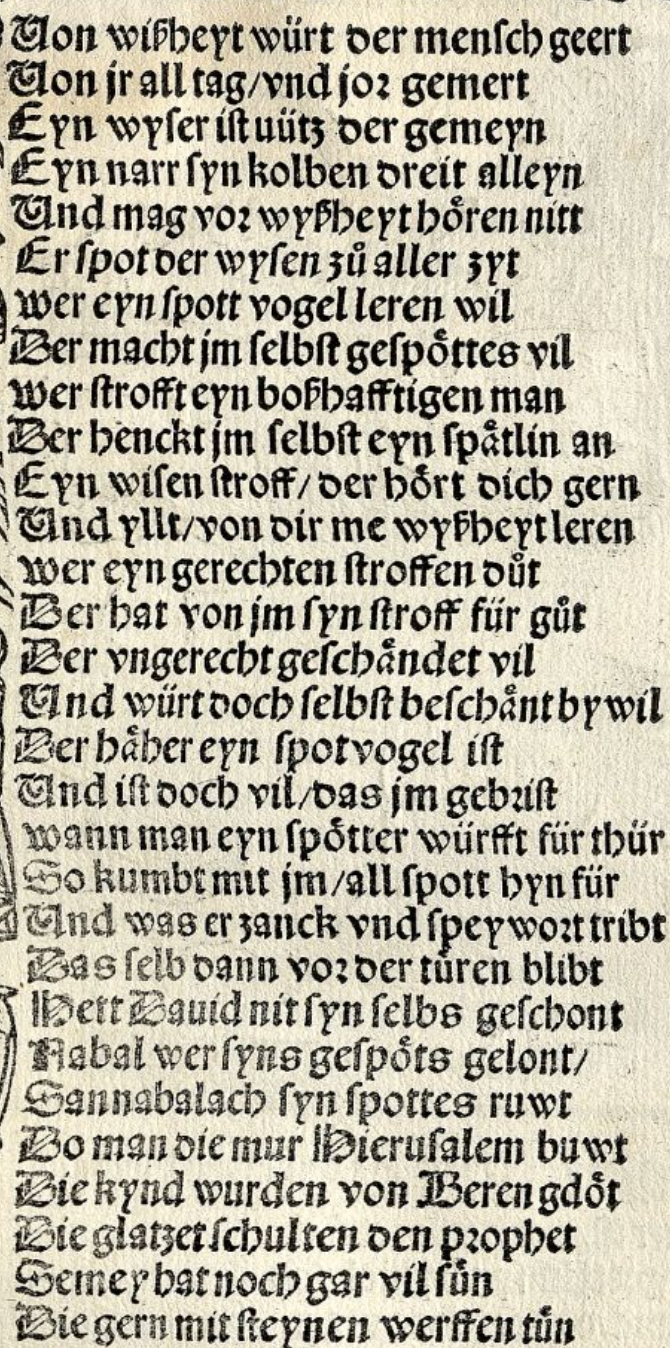 Von wißheyt würt der mensch geert
Von jr all tag/vnd jor gemert
Eyn wyser ist uütz der gemeyn
Eyn narr syn kolben dreit alleyn
Vnd mag vor wyßheyt hoͤren nitt
Er spot der wysen zuͦ aller zyt
Wer eyn spott vogel leren wil
Der macht jm selbst gespoͤttes vil
Wer strofft eyn boßhafftigen man
Der henckt jm selbst eyn spaͤtlin an
Eyn wisen stroff/der hoͤrt dich gern
Vnd yllt/von dir me wyßheyt leren
Wer eyn gerechten stroffen duͦt
Der hat von jm syn stroff für guͦt
Der vngerecht geschaͤndet vil
Vnd würt doch selbst beschaͤnt by wil
Der haͤher eyn spotvogel ist
Vnd ist doch vil/das jm gebrist
Wann man eyn spoͤtter würfft für thür
So kumbt mit jm/all spott hyn für
Vnd was er zanck vnd speywort tribt
Das selb dann vor der türen blibt
Hett Dauid nit syn selbs geschont
Nabal wer syns gespoͤts gelont/
Sannabalach syn spottes ruwt
Do man die mur Hierusalem buwt
Die kynd wurden von Beren gdoͤt
Die glatzet schulten den prophet
Semey hat noch gar vil sün
Die gern mit steynen werffen tuͤn